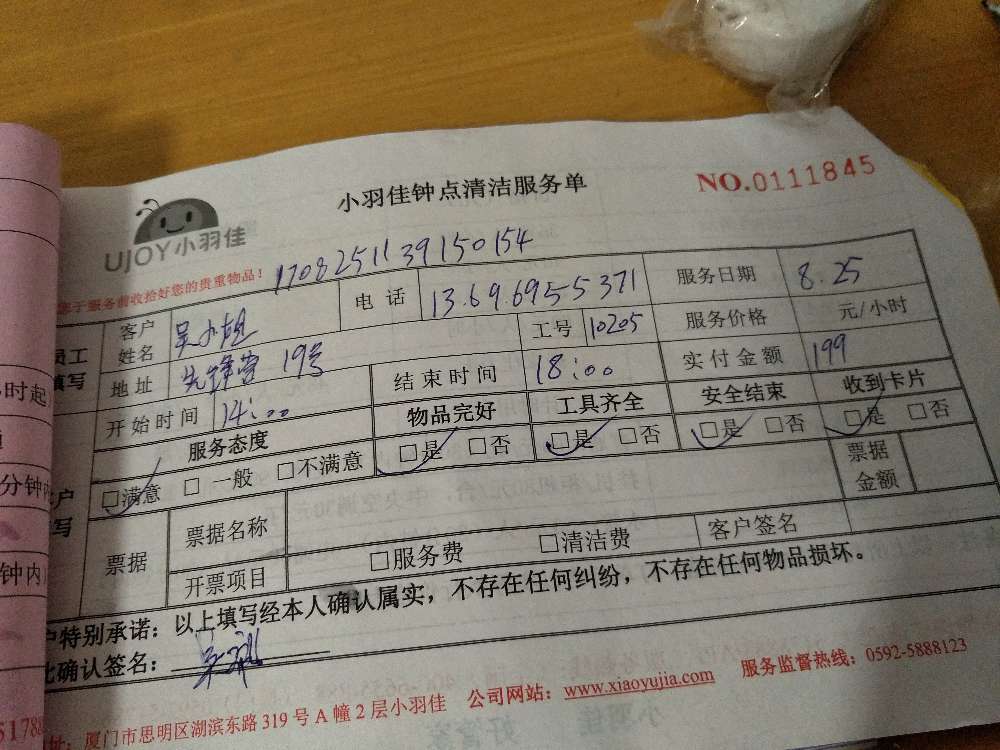 小羽佳钟点清洁服务单
NO.0111845
UJOY小羽佳
您于服务前收拾好您的贵重物品！
1708251139150154
客户姓名 吴小姐 电话 13696955371 服务日期 8.25
地址 先锋营 19号 工号 10205 服务价格 元/小时
开始时间 14:00 结束时间 18:00 实付金额 199
服务态度 物品完好 工具齐全 安全结束 收到卡片
□满意 □一般 □不满意 □是 □否 □是 □否 □是 □否 □是 □否
票据 票据名称 票据金额
开票项目 □服务费 □清洁费 客户签名
户特别承诺：以上填写经本人确认属实，不存在任何纠纷，不存在任何物品损坏。
比确认签名：
厦门市思明区湖滨东路319号A幢2层小羽佳 公司网站：www.xiaoyujia.com 服务监督热线：0592-5888123
员工
填写
时起
分钟内
钟内